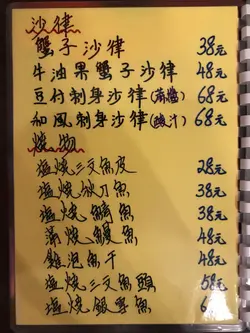 沙律
蟹子沙律 38元
牛油果蟹子沙律 48元
豆付刺身沙律(麻醬) 68元
和風刺身沙律(酸汁) 68元
燒物
塩燒三文魚皮 28元
塩燒秋刀魚 38元
塩燒鯖魚 38元
蒲燒鰻魚 48元
雞泡魚干 48元
塩燒三文魚頭 58元
塩燒銀鱈魚